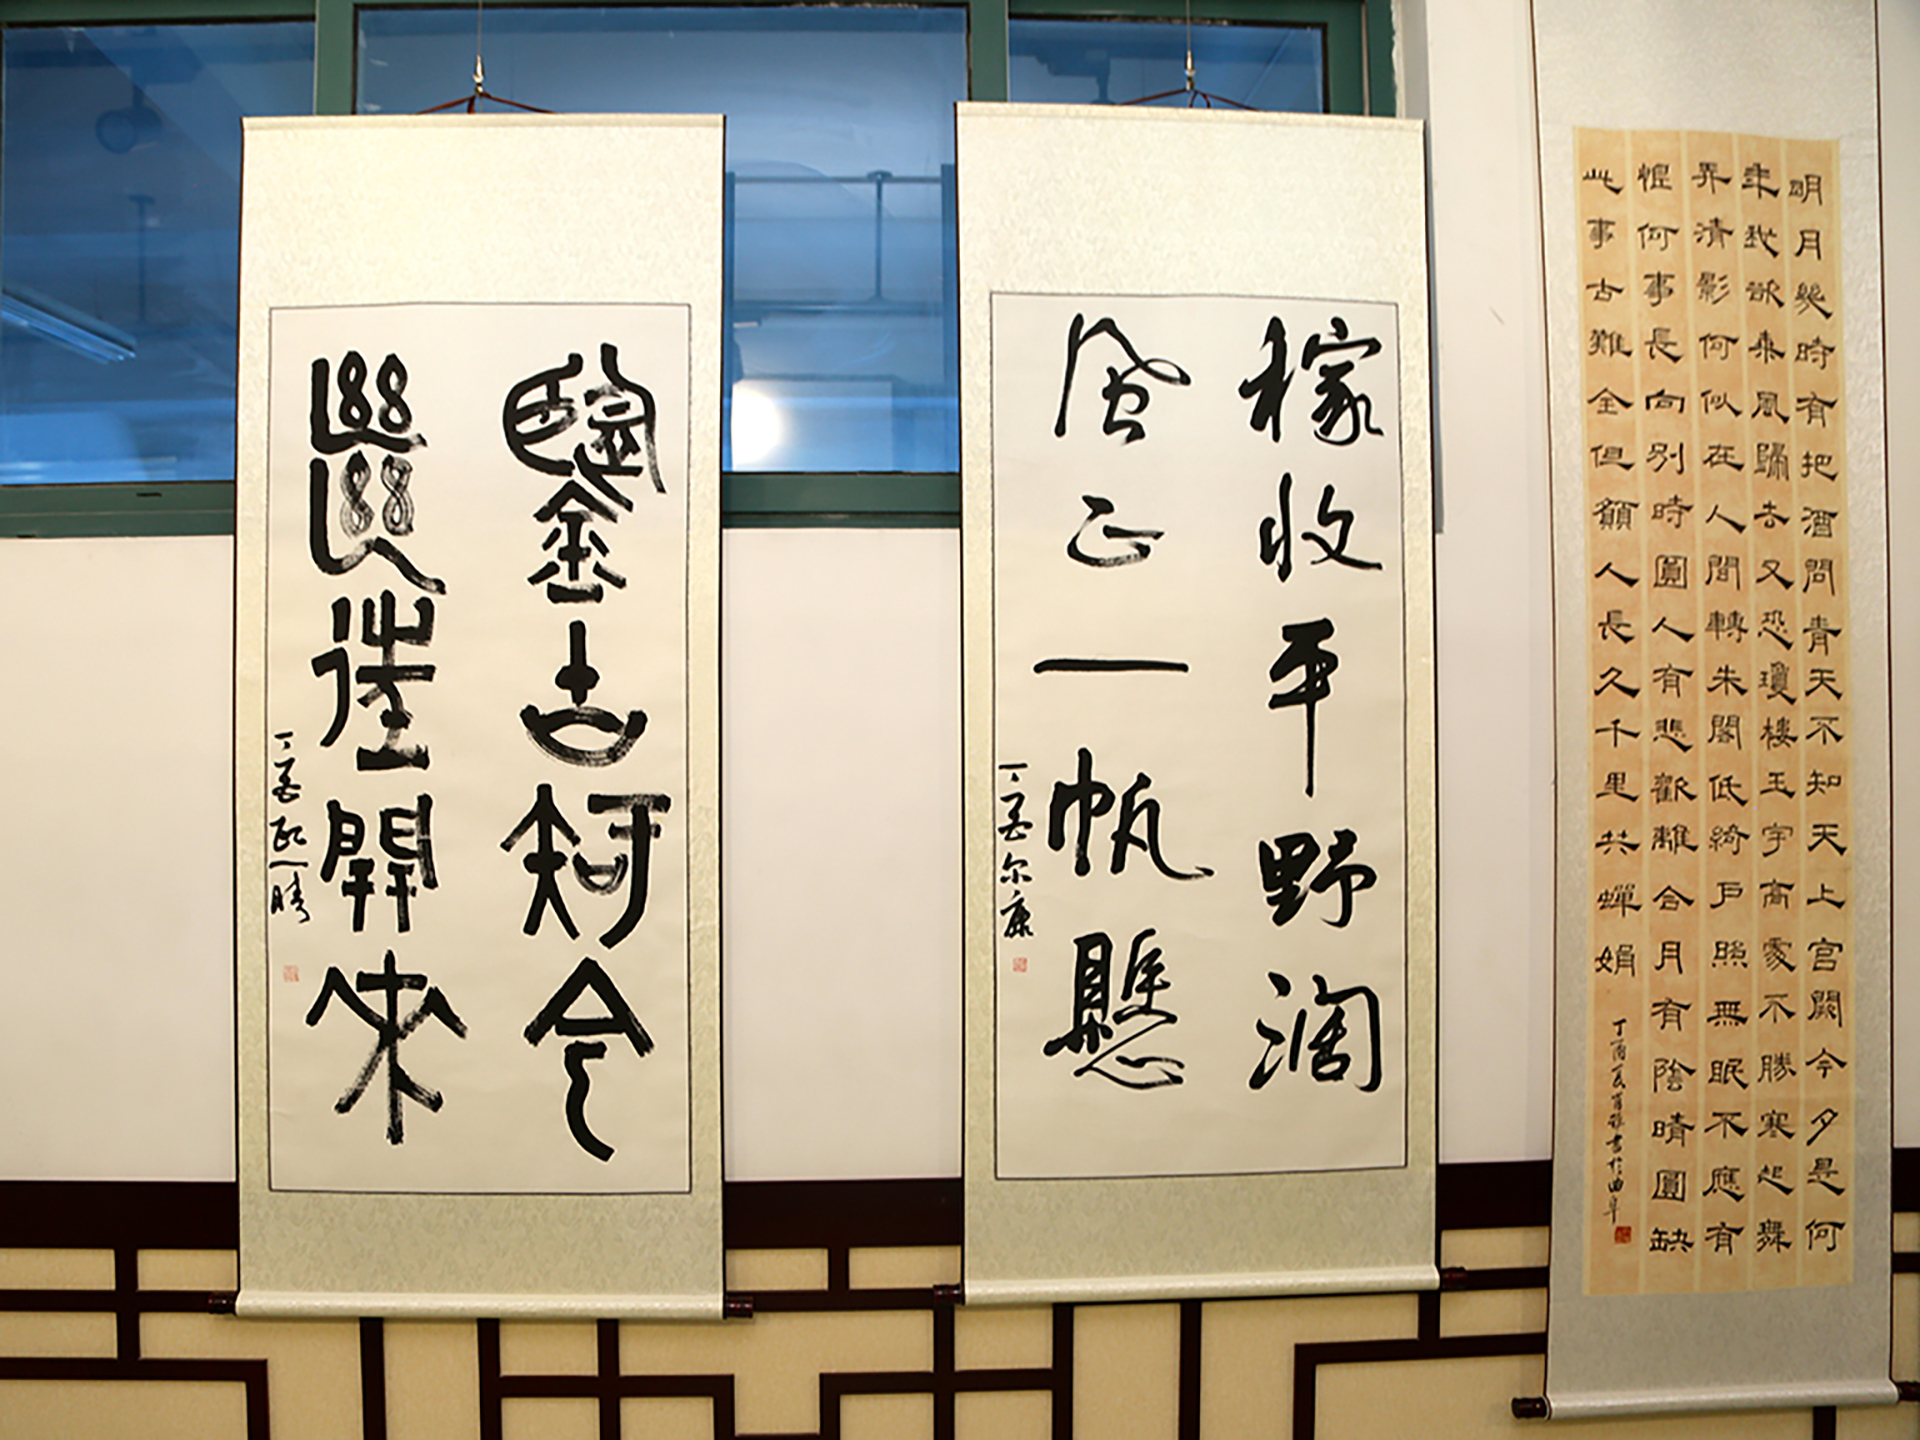 明月幾時有把酒問青天不知天上宮闕今夕是何
年我欲乘風歸去又恐瓊樓玉宇高處不勝寒起舞
弄清影何似在人間轉朱閣低綺戶照無眠不應有
恨何事長向別時圓人有悲歡離合月有陰晴圓缺
此事古難全但願人長久千里共蟬娟
丁酉夏書於曲阜
稼收平野闊
風正一帆懸
丁酉尔康
鑒古知今
繼往開來
丁酉晴